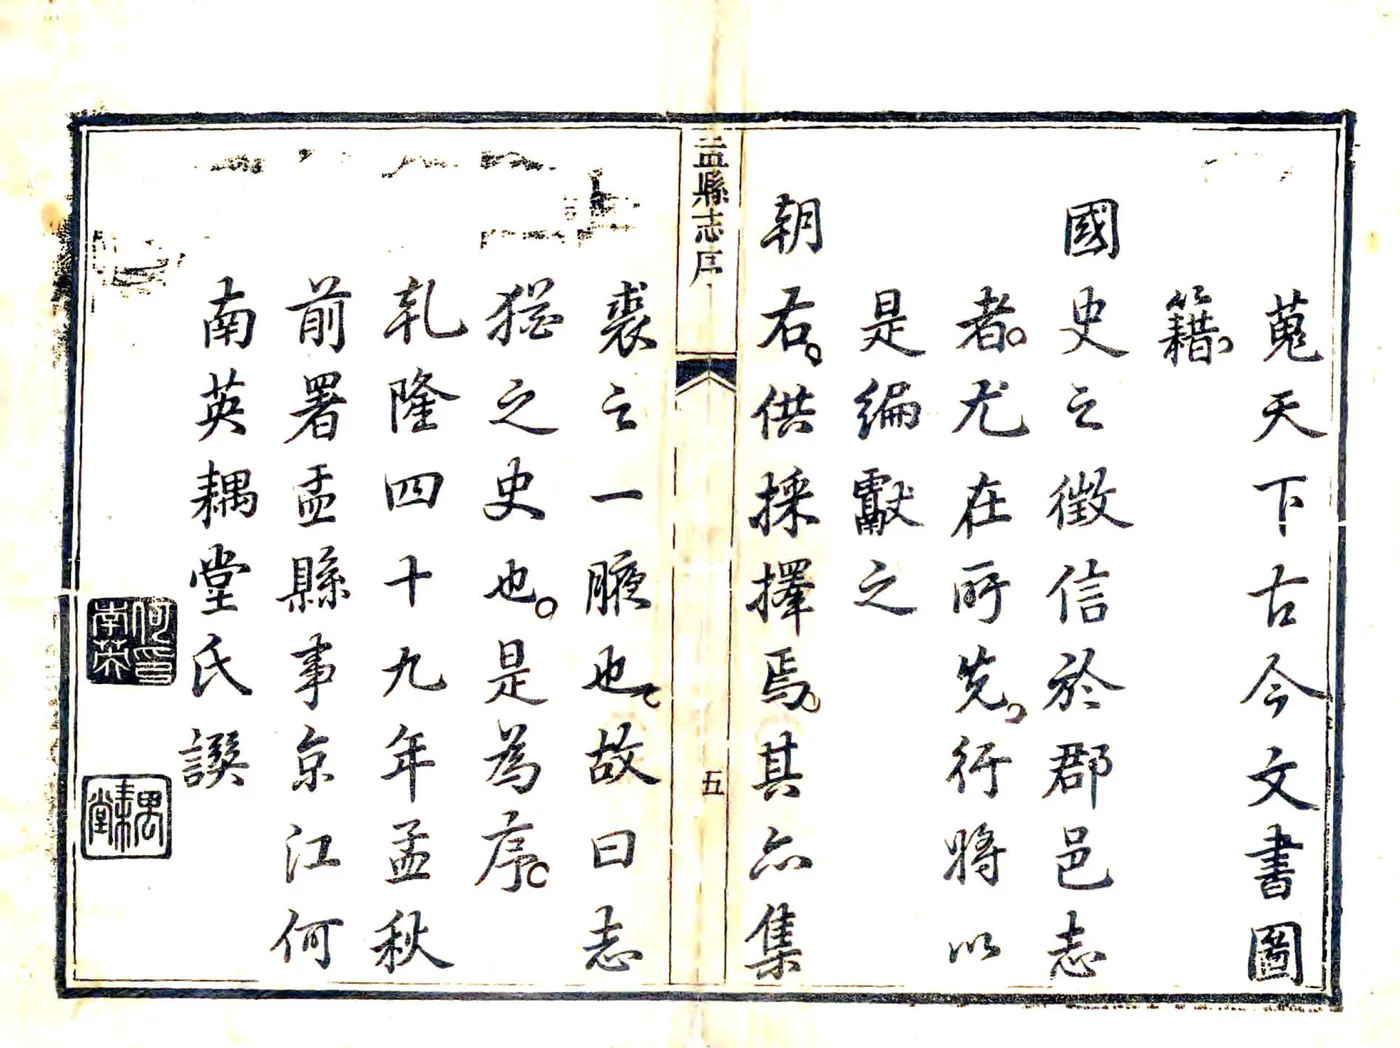 蒐天下古今文書圖
籍。
國史之徵信於郡邑志
者。尤在所先。行將以
是編獻之
朝右。供採擇焉。其亦集
盂縣志序
五
裘之一腋也。故曰志
猶之史也。是為序。
乹隆四十九年孟秋
前署盂縣事京江何
南英耦堂氏譔
何印南英
耦堂